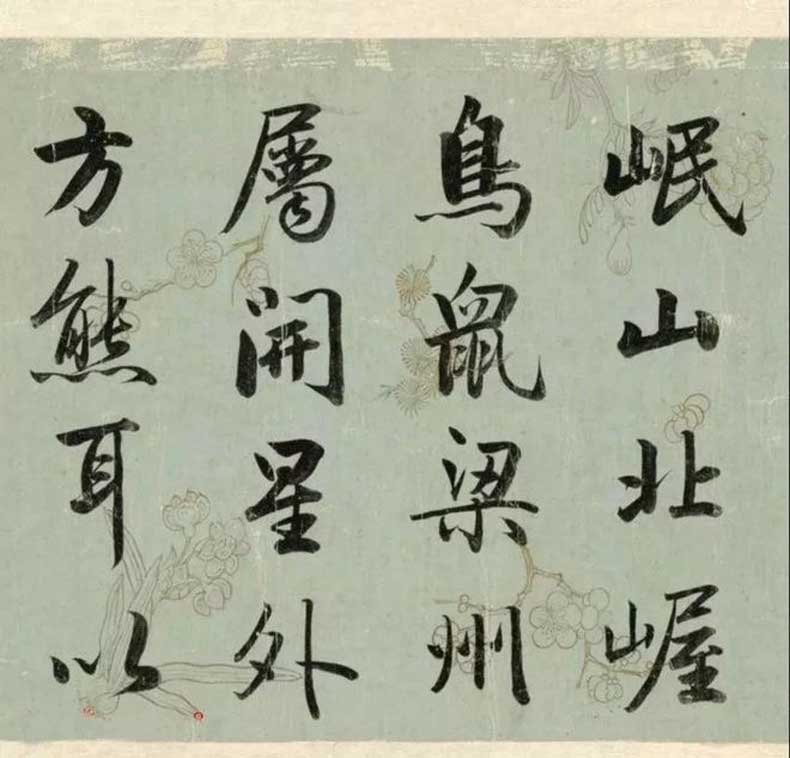 岷山北崌
鳥鼠梁州
屬開星外
方熊耳以